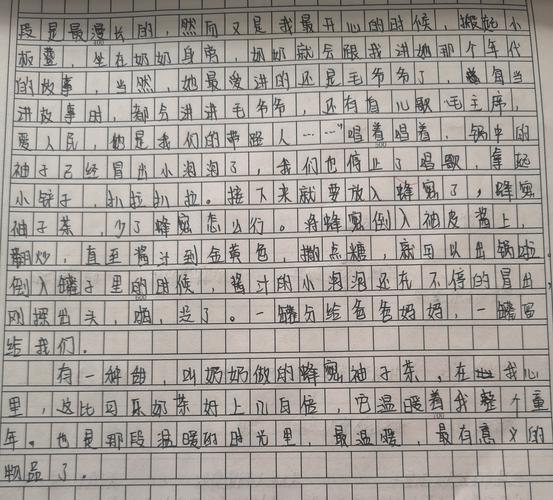 段是最漫长的，然而又是我最开心的时候，搬起小
板凳，坐在奶奶身旁，奶奶就会跟我讲她那个年代
的故事，当然，她最爱讲的还是毛爷爷了，每当
讲故事时，都会讲讲毛爷爷，还有首儿歌"毛主席，
爱人民，他是我们的带路人……"唱着唱着，锅中的
柚子已经冒出小泡泡了，我们也停止了唱歌，拿起
小铲子，扒拉扒拉。接下来就要放入蜂蜜了，蜂蜜
柚子茶，少了蜂蜜怎么行。将蜂蜜倒入柚皮酱上，
翻炒，直至酱汁到金黄色，撒点糖，就可以出锅啦。
倒入罐子里的时候，酱汁的小泡泡还在不停的冒出，
刚探出头，啪，没了。一罐分给爸爸妈妈，一罐留
给我们。
有一种甜，叫奶奶做的蜂蜜柚子茶，在我心
里，这比可乐奶茶好上几百倍，它温暖着我整个童
年。也是那段温暖的时光里，最温暖，最有意义的
物品了。
500
600
700